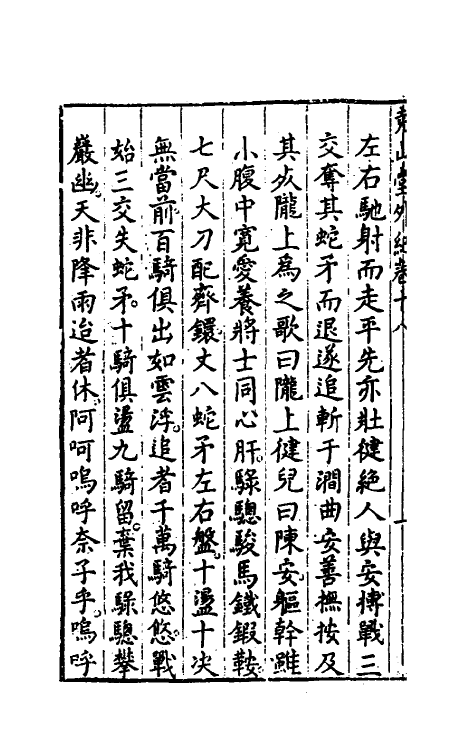 左右馳射而走平先亦壯健絕人與安搏戰三
交奪其蛇矛而退遂追斬于澗曲安善撫按及
其死隴上為之歌曰隴上健兒曰陳安。軀幹雖
小腹中寬愛養將士同心肝。騄驄駿馬鐵鍜鞍
七尺大刀配齊鐶丈八蛇矛左右盤。十盪十决
無當前百騎俱出如雲浮。追者千萬騎悠悠。戰
始三交失蛇矛。十騎俱盪九騎留。棄我騄驄攀
巖幽。天非降雨迨者休。阿呵嗚呼奈子乎。嗚呼
堯山堂外紀卷十八
一